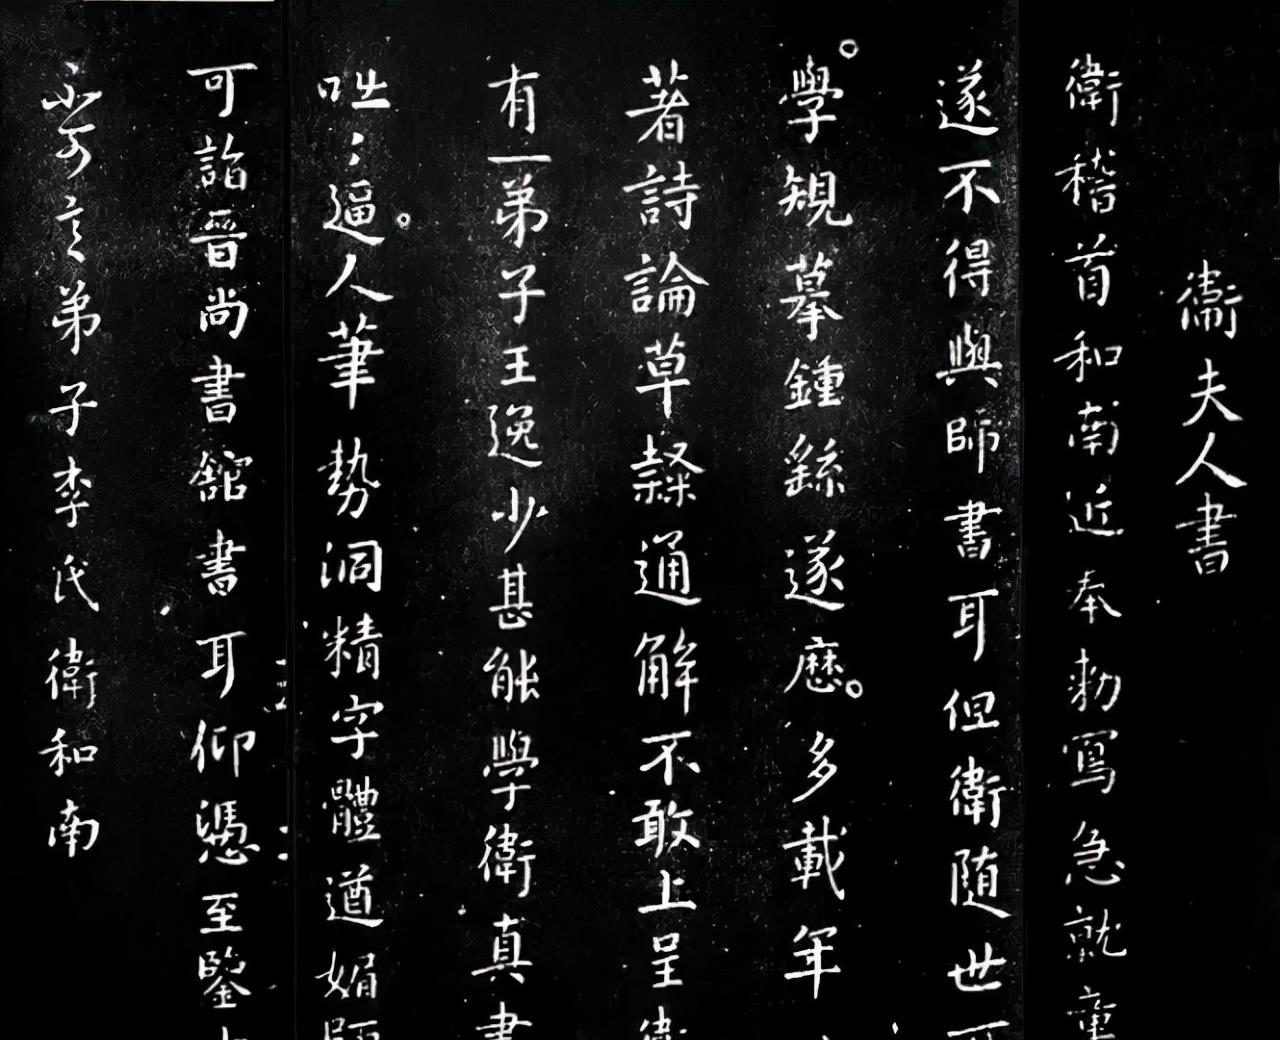 衛夫人書
衛稽首和南近奉勑寫急就章
遂不得與師書耳但衛隨世所
學規摹鍾繇遂歷多載年
著詩論草隸通解不敢上呈衛
有一弟子王逸少甚能學衛真書
咄〻逼人筆勢洞精字體遒媚師
可詣晉尚書舘書耳仰憑至鑒大
弟子李氏衛和南